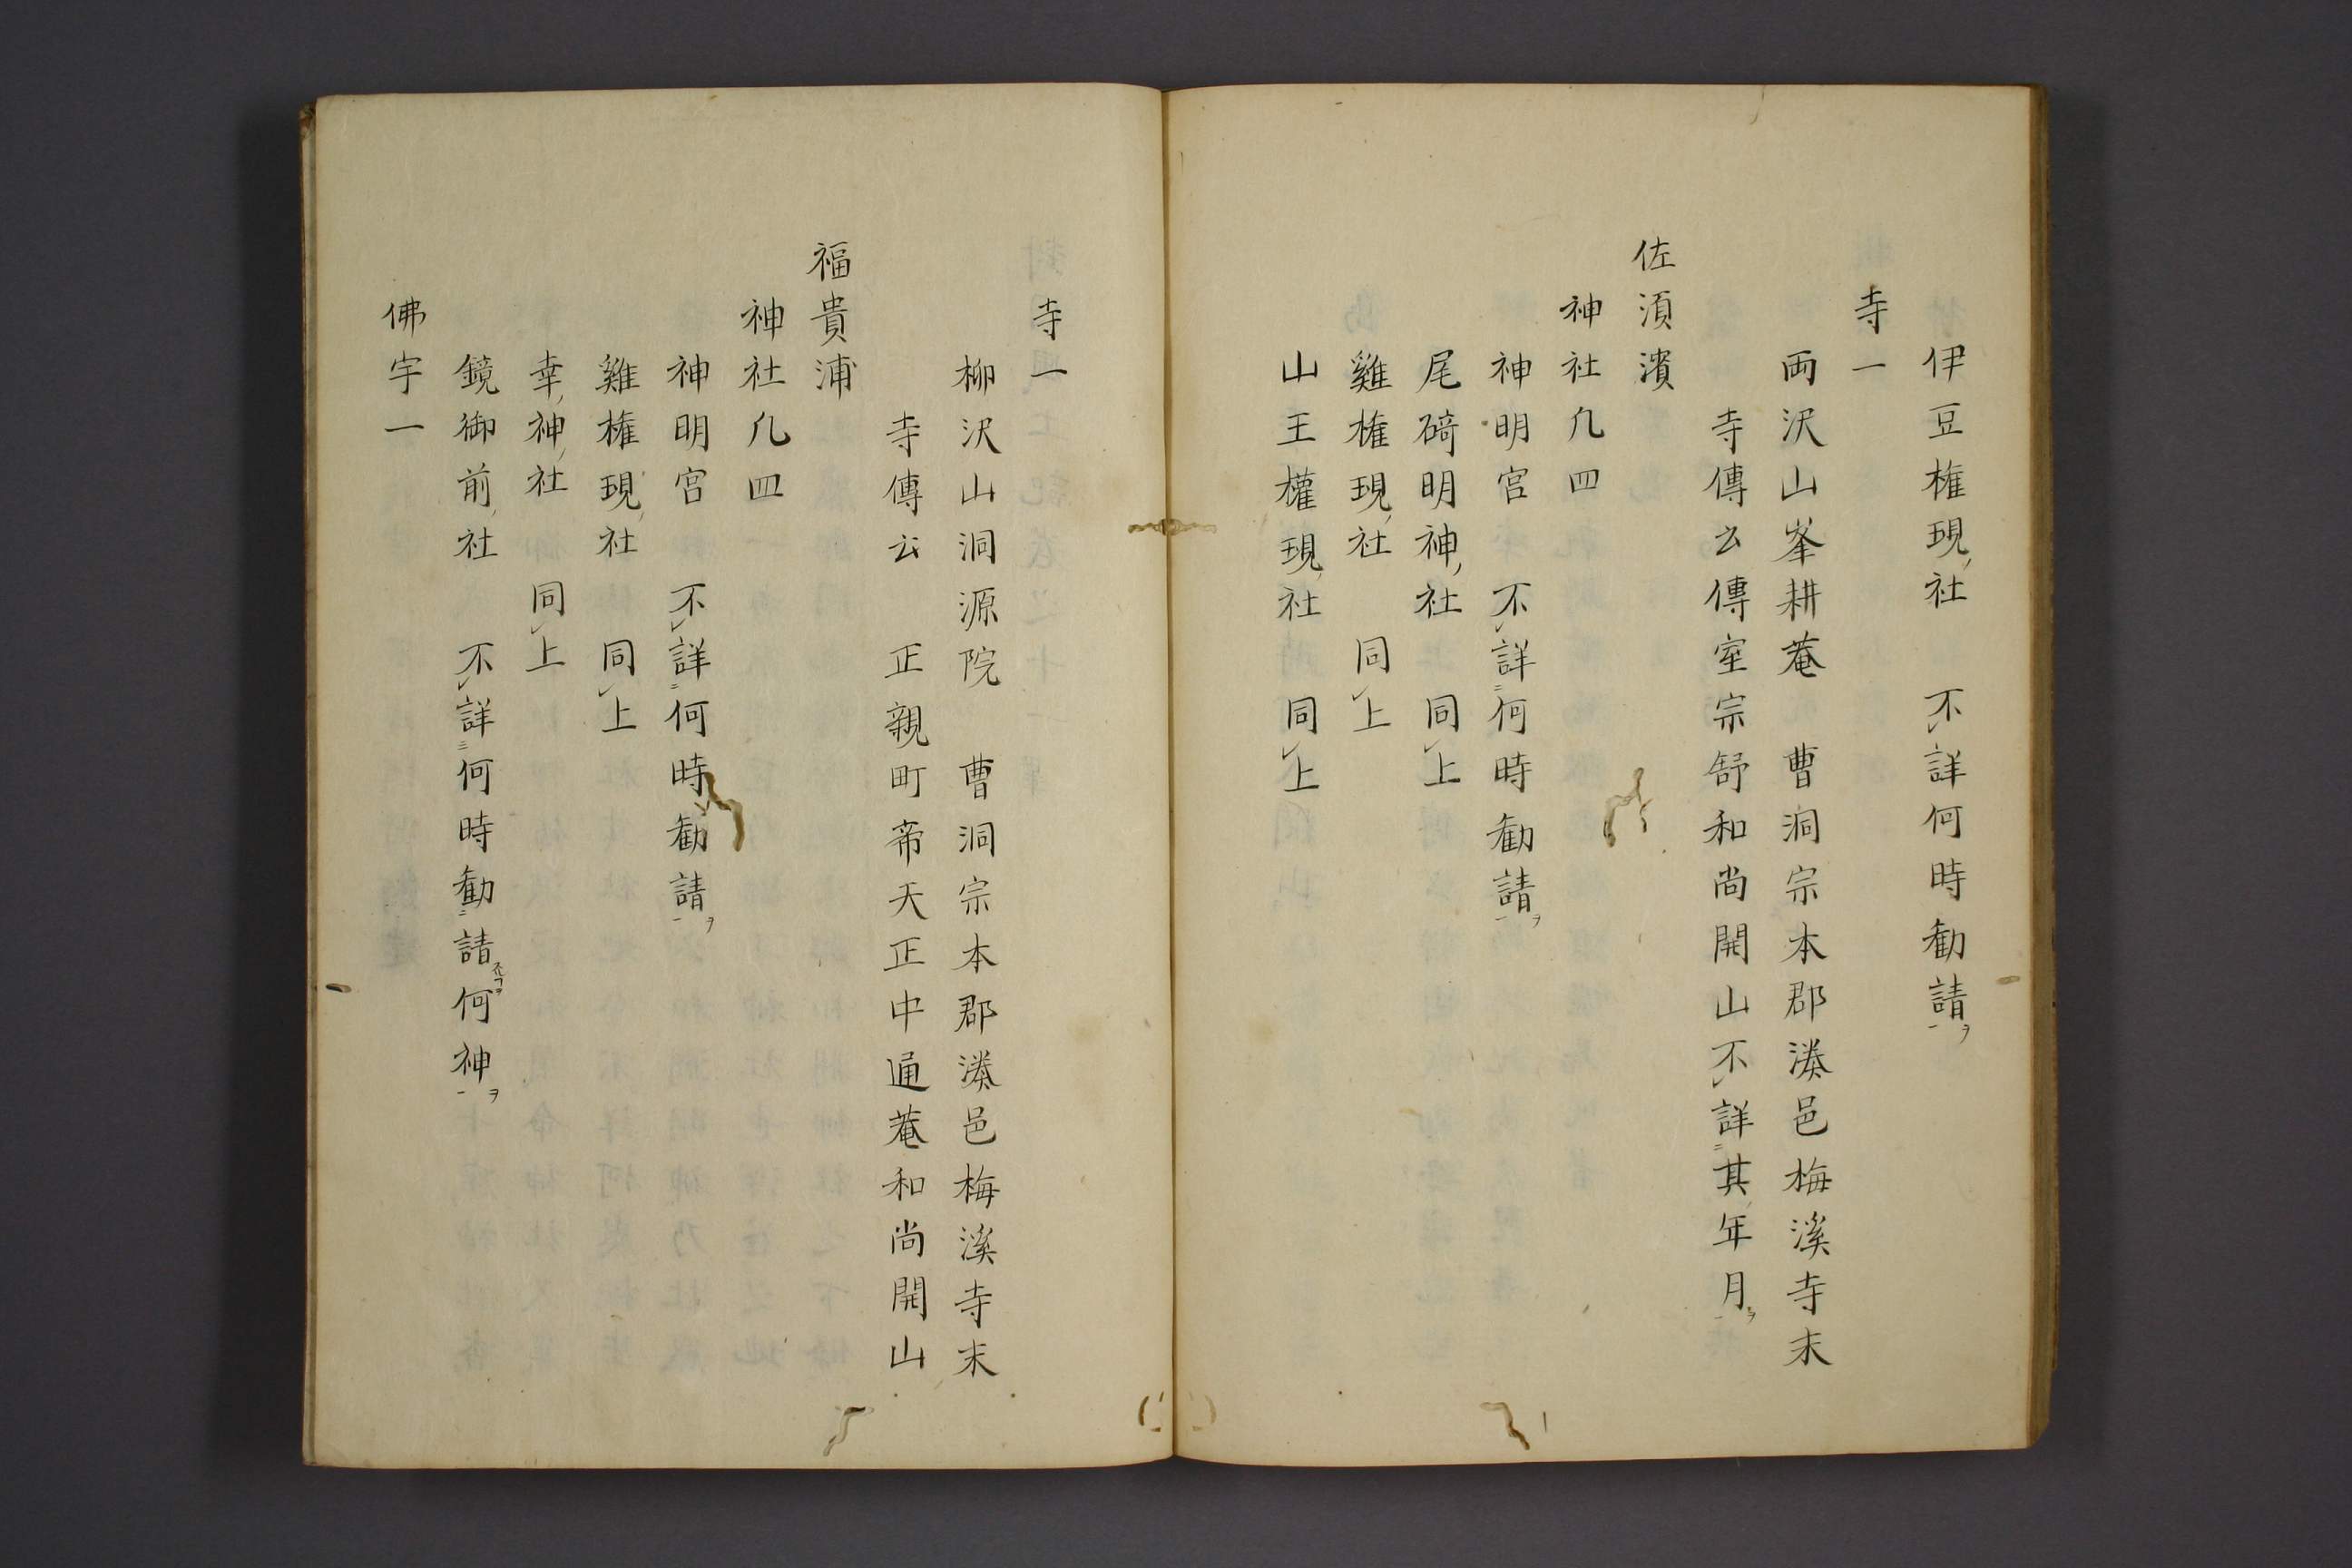 伊豆権現社　不詳何時勧請
寺一
両沢山峯耕菴　曹洞宗本郡湊邑梅溪寺末
寺傳云傳室宗舒和尚開山不詳其年月
佐須濱
神社凡四
神明宮　不詳何時勧請
尾碕明神社　同上
雞権現社　同上
山王權現社　同上
寺一
柳沢山洞源院　曹洞宗本郡湊邑梅溪寺末
寺傳云　正親町帝天正中通菴和尚開山
福貴浦
神社凡四
神明宮　不詳何時勧請
雞権現社　同上
幸神社　同上
鏡御前社　不詳何時勧請何神
佛宇一